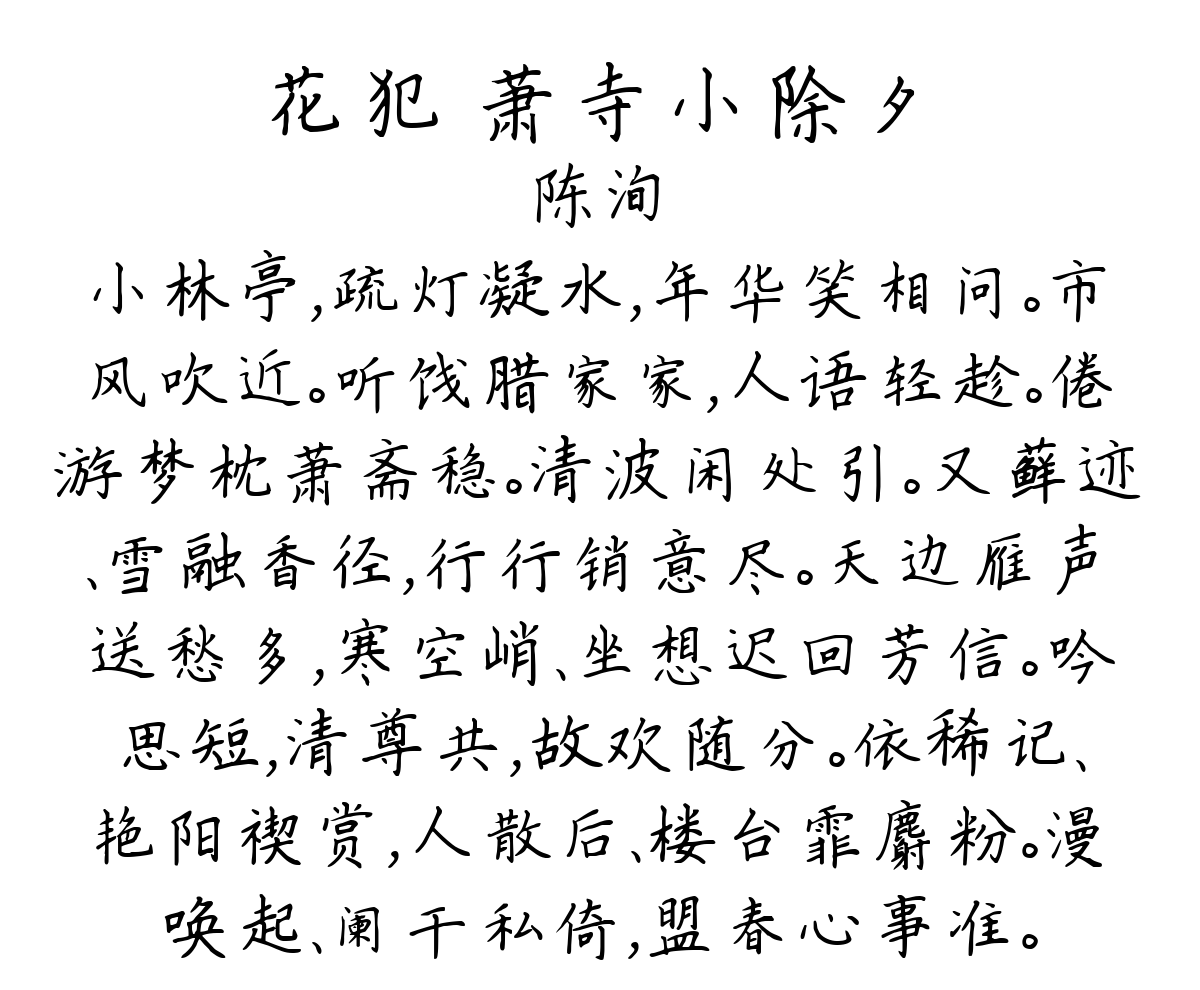 花犯 萧寺小除夕
陈洵
小林亭,疏灯凝水,年华笑相问。市
风吹近。听饯腊家家,人语轻趁。倦
游梦枕萧斋稳。清波闲处引。又藓迹
、雪融香径,行行销意尽。天边雁声
送愁多,寒空峭、坐想迟回芳信。吟
思短,清尊共,故欢随分。依稀记、
艳阳禊赏,人散后、楼台霏麝粉。漫
唤起、阑干私倚,盟春心事准。